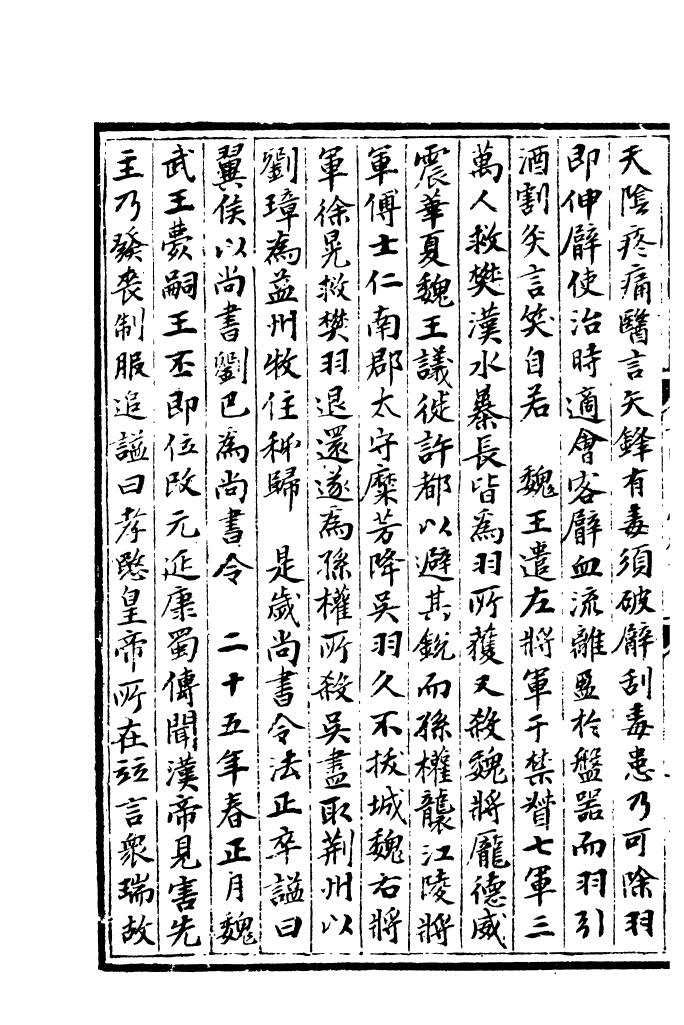 天陰疼痛醫言矢鋒有毒須破臂刮毒患乃可除羽
即伸臂使治時適會客臂血流離盈於盤器而羽引
酒割炙言笑自若　魏王遣左將軍于禁督七軍三
萬人救樊漢水暴長皆為羽所獲又殺魏將龐德威
震華夏魏王議徙許都以避其銳而孫權襲江陵將
軍傅士仁南郡太守糜芳降吳羽久不拔城魏右將
軍徐晃救樊羽退還遂為孫權所殺吳盡取荆州以
劉璋為益州牧住秭歸　是歲尚書令法正卒諡曰
翼侯以尚書劉巴為尚書令　二十五年春正月魏
武王薨嗣王丕即位改元延康蜀傳聞漢帝見害先
主乃發喪制服追諡曰孝愍皇帝所在並言衆瑞故